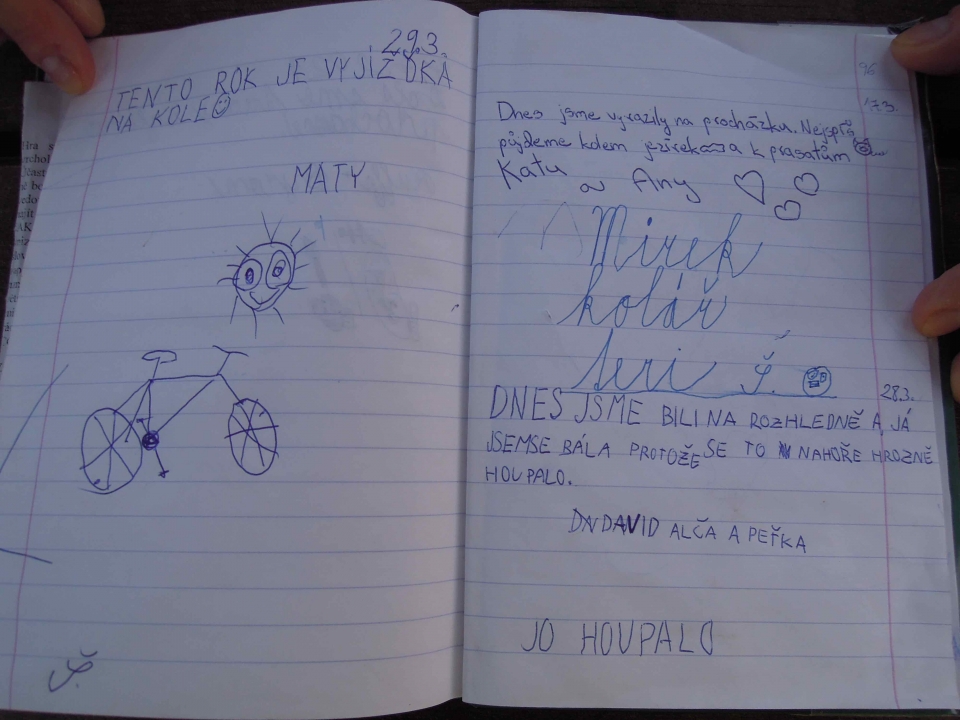 29.3.
TENTO ROK JE VYJÍŽĎKA
NA KOLE
MÁTY
Š.
96
17.3.
Dnes jsme vyrazily na procházku. Nejspíš
půjdeme kolem jezírek a k prasatům
Katu
a Any
Mirek
kolář
Š.
28.3.
DNES JSME BILI NA ROZHLEDNĚ A JÁ
JSEMSE BÁLA PROTOŽE SE TO NAHOŘE HROZNĚ
HOUPALO.
DAVID ALČA A PEŤKA
JO HOUPALO